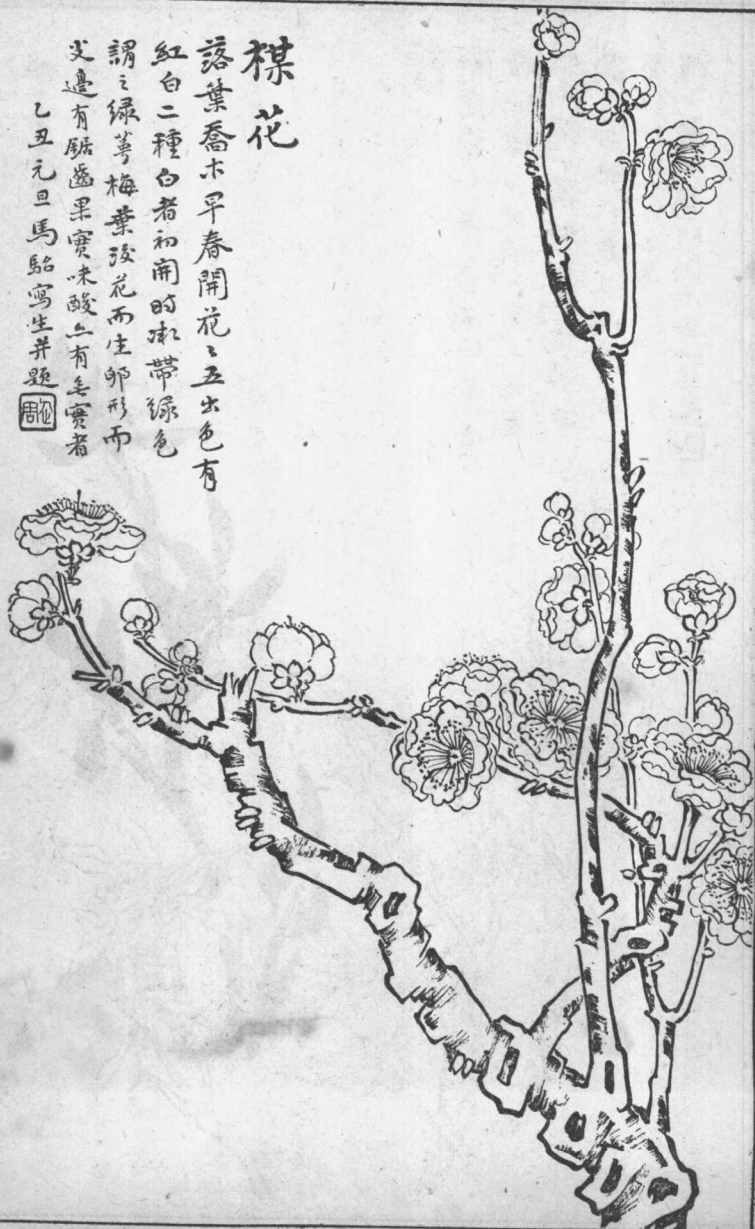 楳花
落葉喬木早春開花々五出色有
紅白二種白者初開時微帶綠色
謂之綠萼梅葉後花而生卵形而
尖邊有鋸齒果實味酸亦有無實者
乙丑元旦馬駘寫生并題
企周